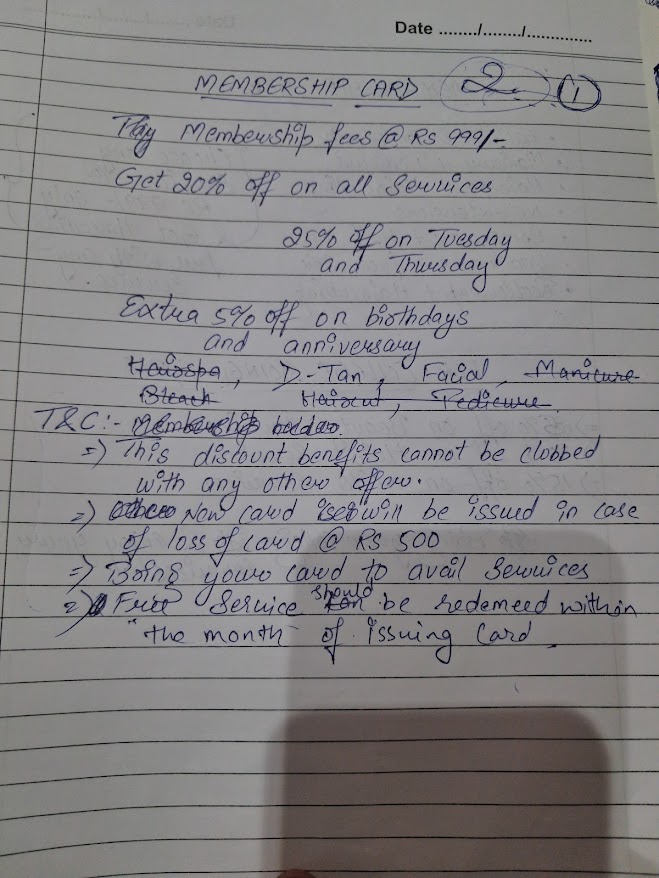 Date ......../......../.............
MEMBERSHIP CARD 2 1
Pay Membership fees @ RS 999/-
Get 20% off on all Services
25% off on Tuesday
and Thursday
Extra 5% off on birthdays
and anniversary
Hairspa, D-Tan, Facial, Manicure
Bleach Haircut, Pedicure
T&C:- Membership holder.
=) This discount benefits cannot be clobbed
with any other offer.
=) New card will be issued in case
of loss of card @ RS 500
=) Bring your card to avail Services
=) Free Service should be redemeed within
"the month" of issuing Card